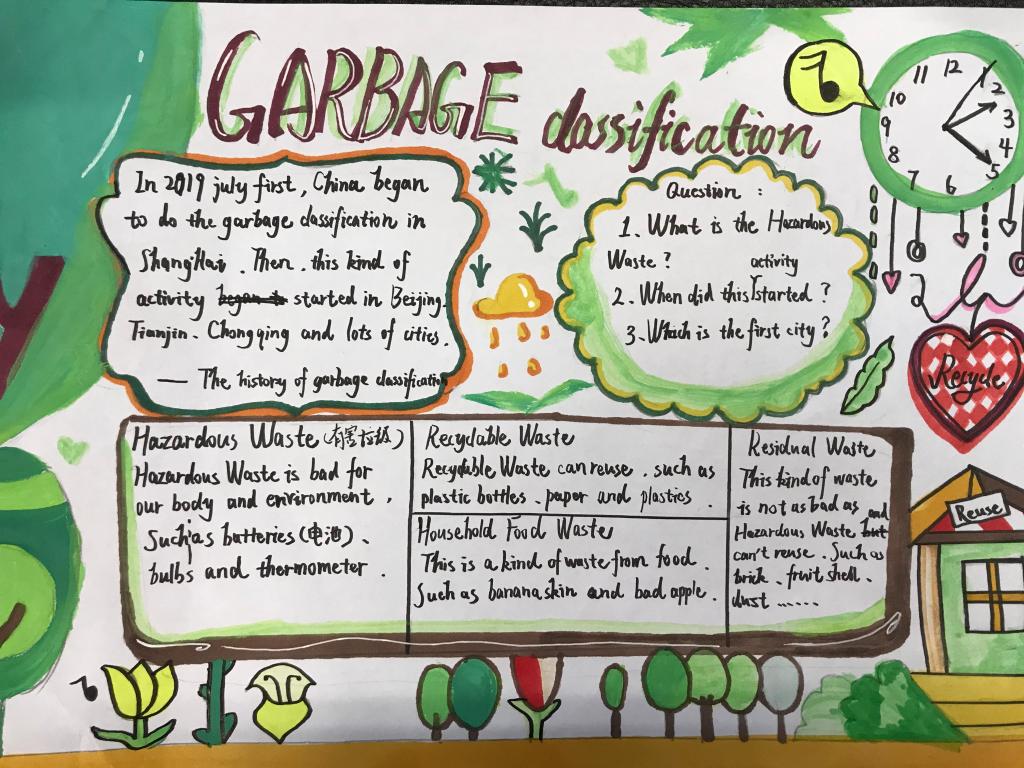 GARBAGE classification
In 2019 july first, China began
to do the garbage classification in
ShangHai. Then. this kind of
activity started in Beijing.
Tianjin. Chongqing and lots of cities.
— The history of garbage classification
Question :
1. What is the Hazardous
Waste ?
activity
2. When did this started ?
3. Which is the first city ?
11 12 1 2 3 4 5 6 7 8 9 10
Recycle
Reuse
Hazardous Waste (有害垃圾)
Hazardous Waste is bad for
our body and environment.
Such as batteries (电池)、
bulbs and thermometer.
Recyclable Waste
Recyclable Waste can reuse. such as
plastic bottles、paper and plastics
Household Food Waste
This is a kind of waste from food.
Such as banana skin and bad apple.
Residual Waste
This kind of waste
is not as bad as and
Hazardous Waste but
can't reuse. Such as
brick、fruit shell、
dust ......